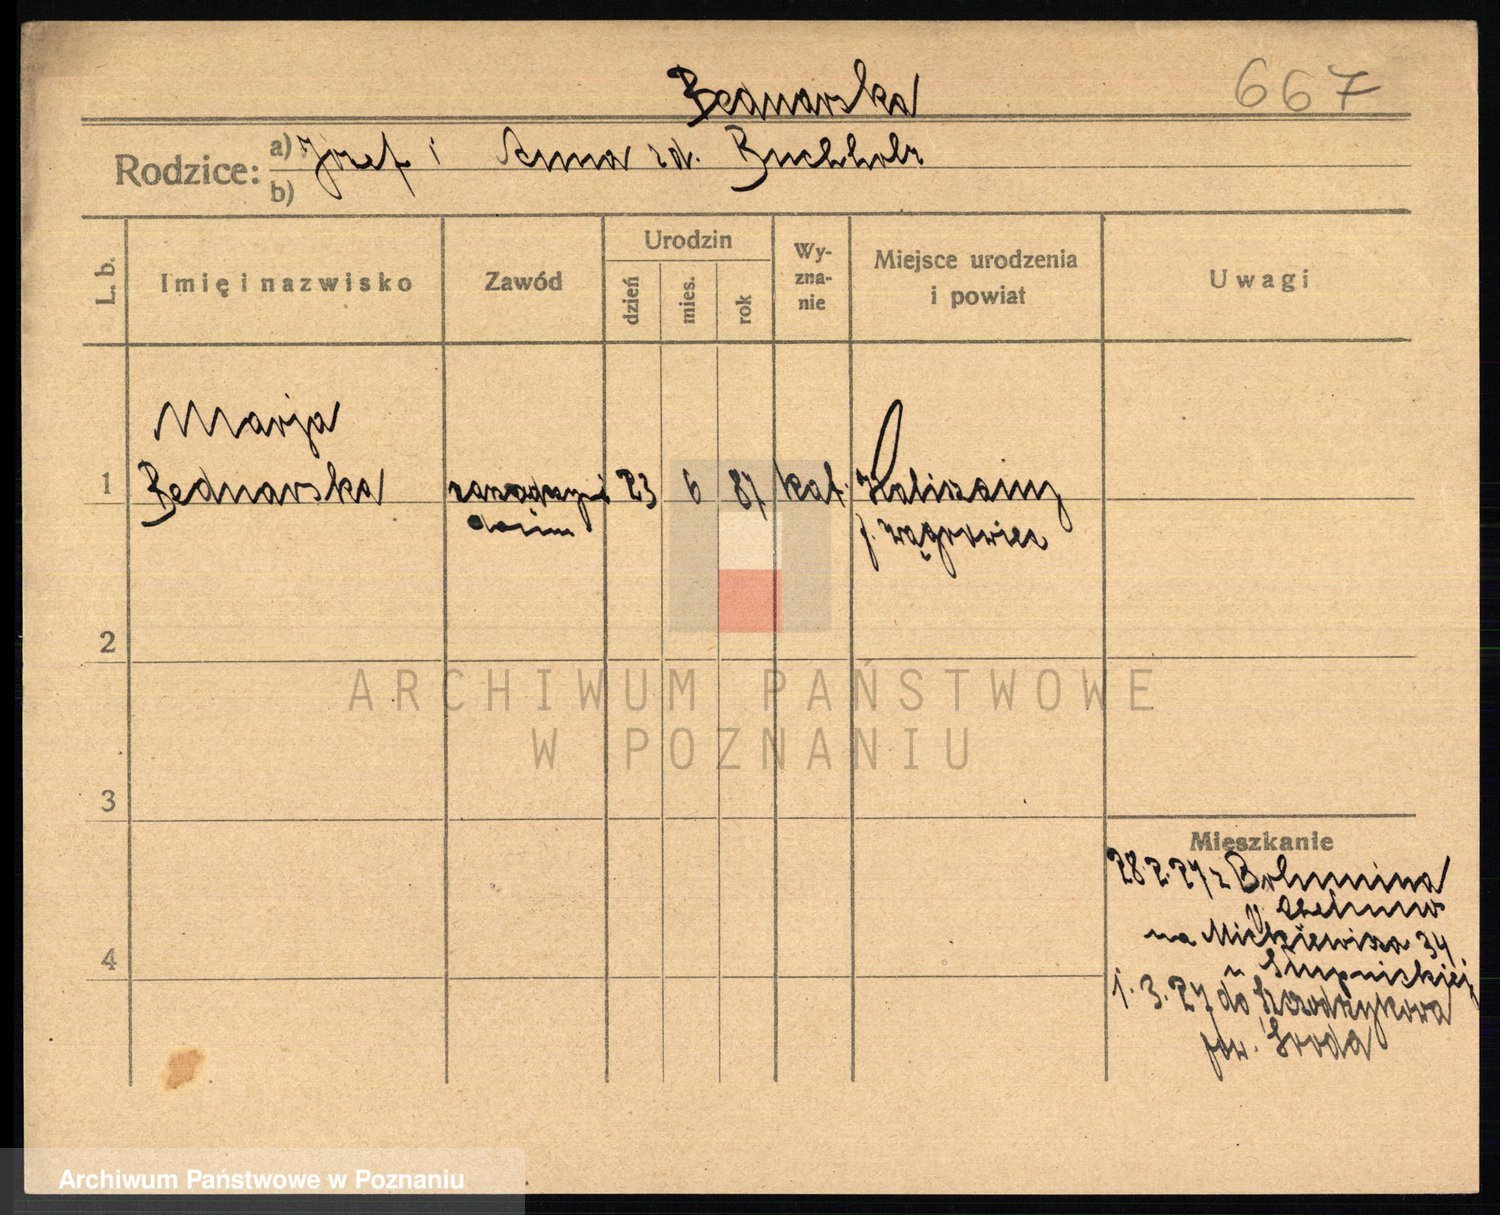 Bednarska
667
Rodzice:
a) Józef i Anna zd. Buchholz
b)
L. b.
Imię i nazwisko
Zawód
Urodzin
dzień
mies.
rok
Wy-
zna-
nie
Miejsce urodzenia
i powiat
Uwagi
Marja
1 Bednarska 23 6 87 kat. Kaliszany
p. Wągrowiec
2
3
4
Mieszkanie
28.2.27 z
na Mickiewicza 34
u Słupnickiej
1.3.27 do Szczodrzykowa
pow. Środa
ARCHIWUM PAŃSTWOWE
W POZNANIU
Archiwum Państwowe w Poznaniu